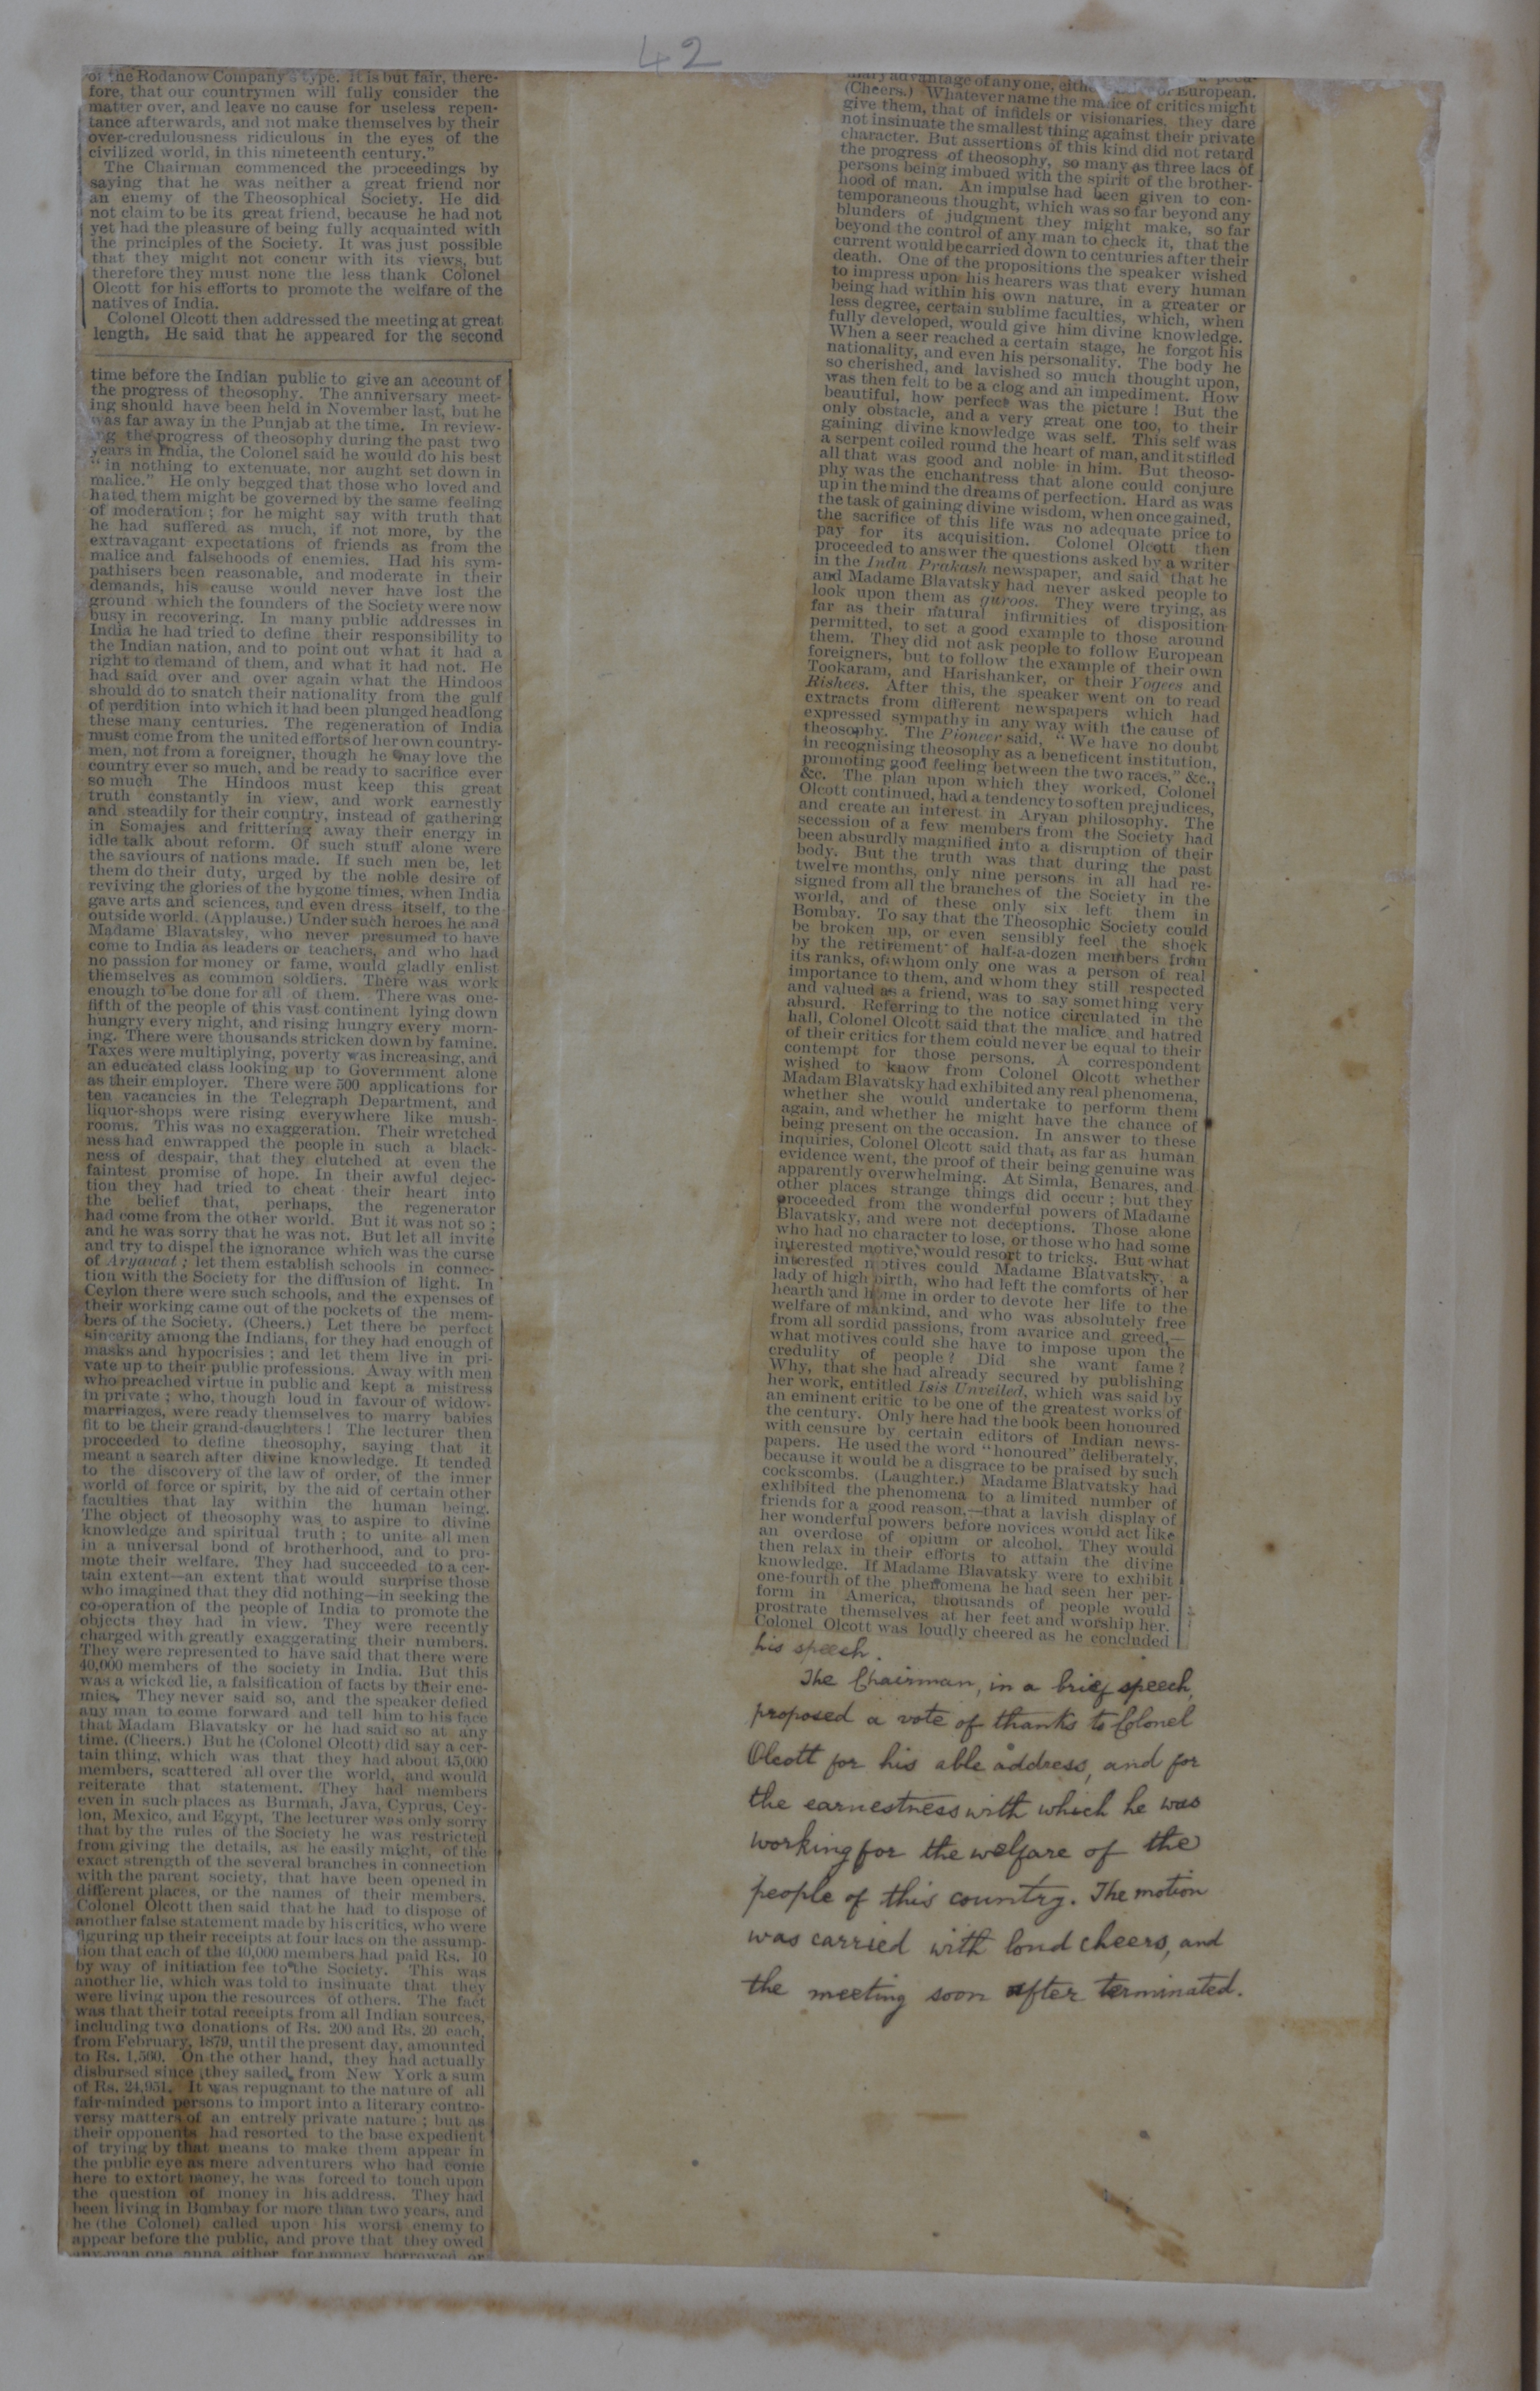 42
of the Rodanow Company's type. It is but fair, there-
fore, that our countrymen will fully consider the
matter over, and leave no cause for useless repen-
tance afterwards, and not make themselves by their
over-credulousness ridiculous in the eyes of the
civilized world, in this nineteenth century."
The Chairman commenced the proceedings by
saying that he was neither a great friend nor
an enemy of the Theosophical Society. He did
not claim to be its great friend, because he had not
yet had the pleasure of being fully acquainted with
the principles of the Society. It was just possible
that they might not concur with its views, but
therefore they must none the less thank Colonel
Olcott for his efforts to promote the welfare of the
natives of India.
Colonel Olcott then addressed the meeting at great
length. He said that he appeared for the second
time before the Indian public to give an account of
the progress of theosophy. The anniversary meet-
ing should have been held in November last, but he
was far away in the Punjab at the time. In review-
ing the progress of theosophy during the past two
years in India, the Colonel said he would do his best
"in nothing to extenuate, nor aught set down in
malice." He only begged that those who loved and
hated them might be governed by the same feeling
of moderation; for he might say with truth that
he had suffered as much, if not more, by the
extravagant expectations of friends as from the
malice and falsehoods of enemies. Had his sym-
pathisers been reasonable, and moderate in their
demands, his cause would never have lost the
ground which the founders of the Society were now
busy in recovering. In many public addresses in
India he had tried to define their responsibility to
the Indian nation, and to point out what it had a
right to demand of them, and what it had not. He
had said over and over again what the Hindoos
should do to snatch their nationality from the gulf
of perdition into which it had been plunged headlong
these many centuries. The regeneration of India
must come from the united efforts of her own country-
men, not from a foreigner, though he may love the
country ever so much, and be ready to sacrifice ever
so much The Hindoos must keep this great
truth constantly in view, and work earnestly
and steadily for their country, instead of gathering
in Somajes and frittering away their energy in
idle talk about reform. Of such stuff alone were
the saviours of nations made. If such men be, let
them do their duty, urged by the noble desire of
reviving the glories of the bygone times, when India
gave arts and sciences, and even dress itself, to the
outside world. (Applause.) Under such heroes he and
Madame Blavatsky, who never presumed to have
come to India as leaders or teachers, and who had
no passion for money or fame, would gladly enlist
themselves as common soldiers. There was work
enough to be done for all of them. There was one-
fifth of the people of this vast continent lying down
hungry every night, and rising hungry every morn-
ing. There were thousands stricken down by famine.
Taxes were multiplying, poverty was increasing, and
an educated class looking up to Government alone
as their employer. There were 500 applications for
ten vacancies in the Telegraph Department, and
liquor-shops were rising everywhere like mush-
rooms. This was no exaggeration. Their wretched
ness had enwrapped the people in such a black-
ness of despair, that they clutched at even the
faintest promise of hope. In their awful dejec-
tion they had tried to cheat their heart into
the belief that, perhaps, the regenerator
had come from the other world. But it was not so;
and he was sorry that he was not. But let all invite
and try to dispel the ignorance which was the curse
of Aryawat; let them establish schools in connec-
tion with the Society for the diffusion of light. In
Ceylon there were such schools, and the expenses of
their working came out of the pockets of the mem-
bers of the Society. (Cheers.) Let there be perfect
sincerity among the Indians, for they had enough of
masks and hypocrisies; and let them live in pri-
vate up to their public professions. Away with men
who preached virtue in public and kept a mistress
in private; who, though loud in favour of widow-
marriages, were ready themselves to marry babies
fit to be their grand-daughters! The lecturer then
proceeded to define theosophy, saying that it
meant a search after divine knowledge. It tended
to the discovery of the law of order, of the inner
world of force or spirit, by the aid of certain other
faculties that lay within the human being.
The object of theosophy was to aspire to divine
knowledge and spiritual truth; to unite all men
in a universal bond of brotherhood, and to pro-
mote their welfare. They had succeeded to a cer-
tain extent—an extent that would surprise those
who imagined that they did nothing—in seeking the
co-operation of the people of India to promote the
objects they had in view. They were recently
charged with greatly exaggerating their numbers.
They were represented to have said that there were
40,000 members of the society in India. But this
was a wicked lie, a falsification of facts by their ene-
mies. They never said so, and the speaker defied
any man to come forward and tell him to his face
that Madam Blavatsky or he had said so at any
time. (Cheers.) But he (Colonel Olcott) did say a cer-
tain thing, which was that they had about 45,000
members, scattered all over the world, and would
reiterate that statement. They had members
even in such places as Burmah, Java, Cyprus, Cey-
lon, Mexico, and Egypt, The lecturer was only sorry
that by the rules of the Society he was restricted
from giving the details, as he easily might, of the
exact strength of the several branches in connection
with the parent society, that have been opened in
different places, or the names of their members.
Colonel Olcott then said that he had to dispose of
another false statement made by his critics, who were
figuring up their receipts at four lacs on the assump-
tion that each of the 40,000 members had paid Rs. 10
by way of initiation fee to the Society. This was
another lie, which was told to insinuate that they
were living upon the resources of others. The fact
was that their total receipts from all Indian sources,
including two donations of Rs. 200 and Rs. 20 each,
from February, 1879, until the present day, amounted
to Rs. 1,560. On the other hand, they had actually
disbursed since they sailed from New York a sum
of Rs. 24,951. It was repugnant to the nature of all
fair-minded persons to import into a literary contro-
versy matters of an entrely private nature; but as
their opponents had resorted to the base expedient
of trying by that means to make them appear in
the public eye as mere adventurers who had come
here to extort money, he was forced to touch upon
the question of money in his address. They had
been living in Bombay for more than two years, and
he (the Colonel) called upon his worst enemy to
appear before the public, and prove that they owed
any man one anna either for money borrowed or
advantage of any one, European.
(Cheers.) Whatever name the malice of critics might
give them, that of infidels or visionaries, they dare
not insinuate the smallest thing against their private
character. But assertions of this kind did not retard
the progress of theosophy, so many as three lacs of
persons being imbued with the spirit of the brother-
hood of man. An impulse had been given to con-
temporaneous thought, which was so far beyond any
blunders of judgment they might make, so far
beyond the control of any man to check it, that the
current would be carried down to centuries after their
death. One of the propositions the speaker wished
to impress upon his hearers was that every human
being had within his own nature, in a greater or
less degree, certain sublime faculties, which, when
fully developed, would give him divine knowledge.
When a seer reached a certain stage, he forgot his
nationality, and even his personality. The body he
so cherished, and lavished so much thought upon,
was then felt to be a clog and an impediment. How
beautiful, how perfect was the picture! But the
only obstacle, and a very great one too, to their
gaining divine knowledge was self. This self was
a serpent coiled round the heart of man, and it stifled
all that was good and noble in him. But theoso-
phy was the enchantress that alone could conjure
up in the mind the dreams of perfection. Hard as was
the task of gaining divine wisdom, when once gained,
the sacrifice of this life was no adequate price to
pay for its acquisition. Colonel Olcott then
proceeded to answer the questions asked by a writer
in the Indu Prakash newspaper, and said that he
and Madame Blavatsky had never asked people to
look upon them as guroos. They were trying, as
far as their natural infirmities of disposition
permitted, to set a good example to those around
them. They did not ask people to follow European
foreigners, but to follow the example of their own
Tookaram, and Harishanker, or their Yogees and
Rishees. After this, the speaker went on to read
extracts from different newspapers which had
expressed sympathy in any way with the cause of
theosophy. The Pioneer said, "We have no doubt
in recognising theosophy as a beneficent institution,
promoting good feeling between the two races," &c.,
&c. The plan upon which they worked, Colonel
Olcott continued, had a tendency to soften prejudices,
and create an interest in Aryan philosophy. The
secession of a few members from the Society had
been absurdly magnified into a disruption of their
body. But the truth was that during the past
twelve months, only nine persons in all had re-
signed from all the branches of the Society in the
world, and of these only six left them in
Bombay. To say that the Theosophic Society could
be broken up, or even sensibly feel the shock
by the retirement of half-a-dozen members from
its ranks, of whom only one was a person of real
importance to them, and whom they still respected
and valued as a friend, was to say something very
absurd. Referring to the notice circulated in the
hall, Colonel Olcott said that the malice and hatred
of their critics for them could never be equal to their
contempt for those persons. A correspondent
wished to know from Colonel Olcott whether
Madam Blavatsky had exhibited any real phenomena,
whether she would undertake to perform them
again, and whether he might have the chance of
being present on the occasion. In answer to these
inquiries, Colonel Olcott said that, as far as human
evidence went, the proof of their being genuine was
apparently overwhelming. At Simla, Benares, and
other places strange things did occur; but they
proceeded from the wonderful powers of Madame
Blavatsky, and were not deceptions. Those alone
who had no character to lose, or those who had some
interested motive, would resort to tricks. But what
interested motives could Madame Blatvatsky, a
lady of high birth, who had left the comforts of her
hearth and home in order to devote her life to the
welfare of mankind, and who was absolutely free
from all sordid passions, from avarice and greed,—
what motives could she have to impose upon the
credulity of people? Did she want fame?
Why, that she had already secured by publishing
her work, entitled Isis Unveiled, which was said by
an eminent critic to be one of the greatest works of
the century. Only here had the book been honoured
with censure by certain editors of Indian news-
papers. He used the word "honoured" deliberately,
because it would be a disgrace to be praised by such
cockscombs. (Laughter.) Madame Blatvatsky had
exhibited the phenomena to a limited number of
friends for a good reason,—that a lavish display of
her wonderful powers before novices would act like
an overdose of opium or alcohol. They would
then relax in their efforts to attain the divine
knowledge. If Madame Blavatsky were to exhibit
one-fourth of the phenomena he had seen her per-
form in America, thousands of people would
prostrate themselves at her feet and worship her.
Colonel Olcott was loudly cheered as he concluded
his speech.
The Chairman, in a brief speech,
proposed a vote of thanks to Colonel
Olcott for his able address, and for
the earnestness with which he was
working for the welfare of the
people of this country. The motion
was carried with loud cheers, and
the meeting soon after terminated.